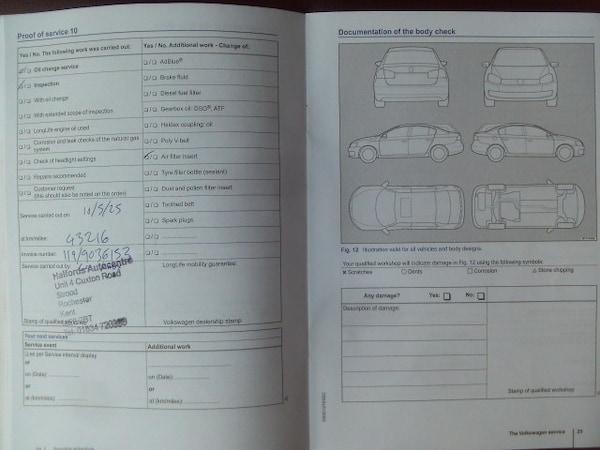 Proof of service 10
Yes / No. The following work was carried out:
Oil change service
Inspection
With oil change
With extended scope of inspection
LongLife engine oil used
Corrosion and leak checks of the natural gas
system
Check of headlight settings
Repairs recommended
Customer request
(this should also be noted on the order)
Service carried out on 10/5/25
at km/miles: 43216
Invoice number: 119/9036153
Service carried out by
Halfords Autocentre
Unit 4 Cuxton Road
Strood
Rochester
Kent
Tel: 01634 720355
Stamp of qualified
Yes / No. Additional work - Change of:
AdBlue®
Brake fluid
Diesel fuel filter
Gearbox oil: DSG®, ATF
Haldex coupling: oil
Poly V-belt
Air filter insert
Tyre filler bottle (sealant)
Dust and pollen filter insert
Toothed belt
Spark plugs
LongLife mobility guarantee
Volkswagen dealership stamp
Your next services
Service event
Additional work
as per Service interval display
or
on (Date)
or
at (km/miles)
on (Date)
or
at (km/miles)
Documentation of the body check
Fig. 12 Illustration valid for all vehicles and body designs.
Your qualified workshop will indicate damage in Fig. 12 using the following symbols:
x Scratches
○ Dents
□ Corrosion
△ Stone chipping
Any damage? Yes: No:
Description of damage:
Stamp of qualified workshop
The Volkswagen service 25